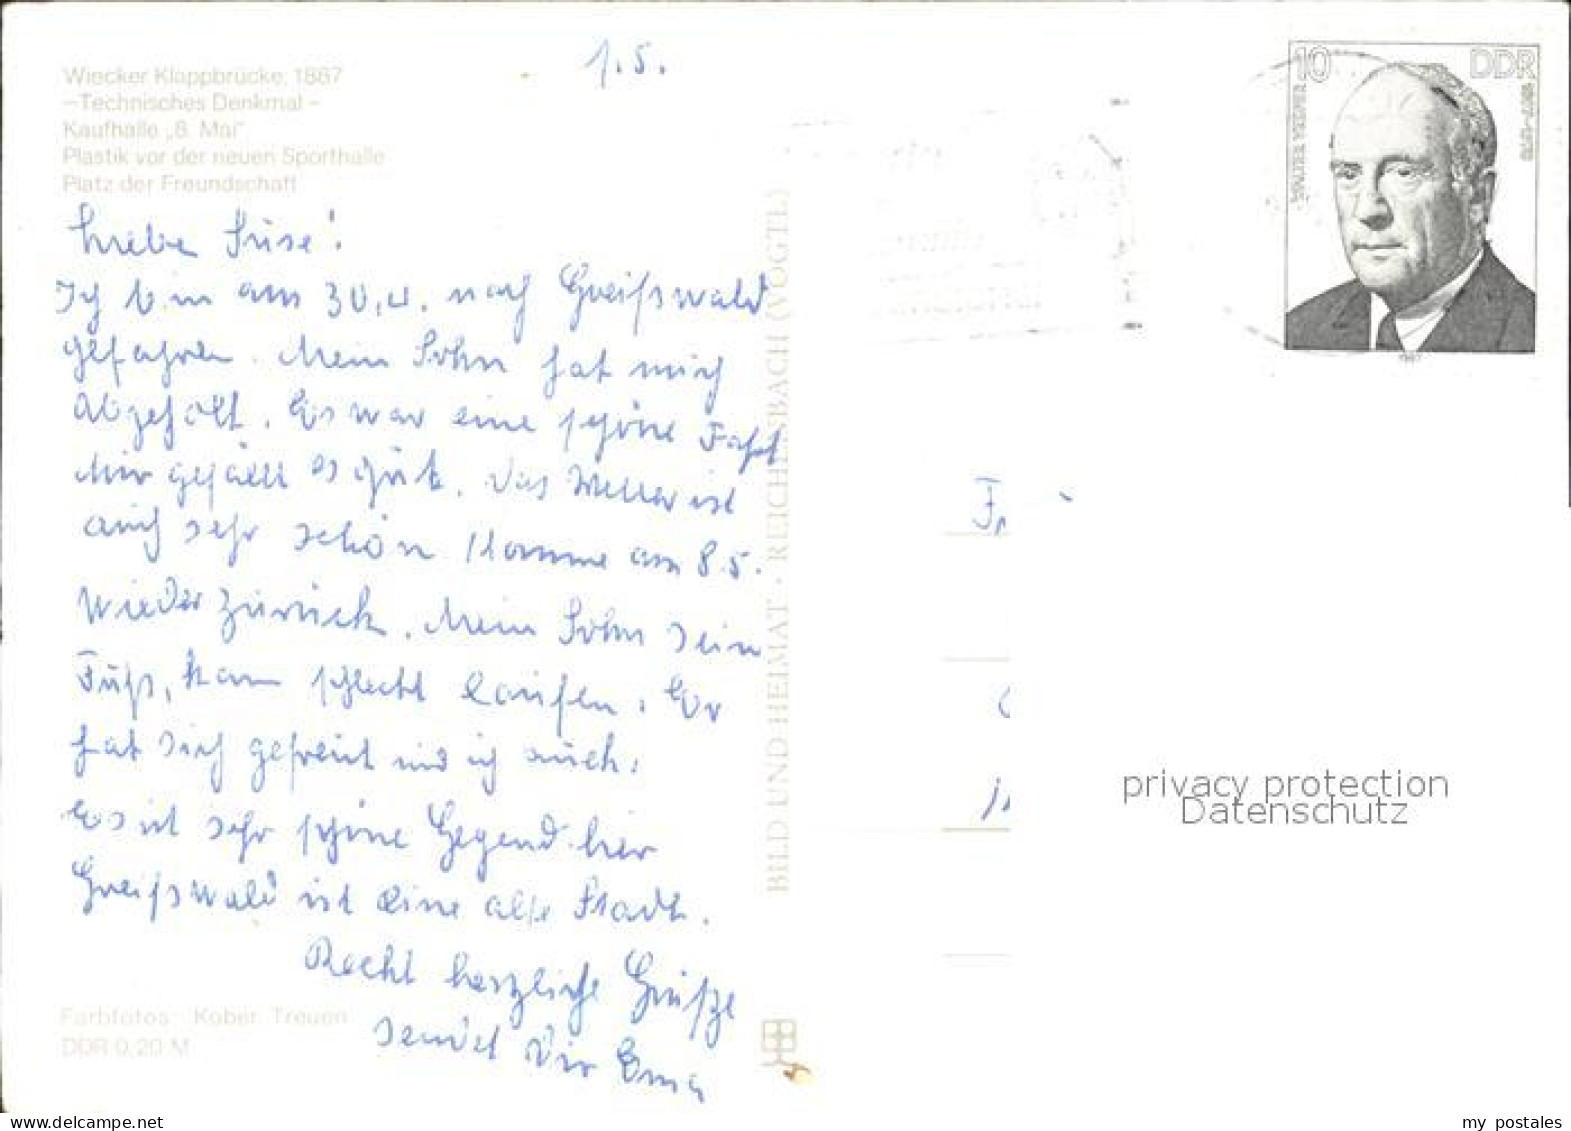 Wiecker Klappbrücke, 1887
– Technisches Denkmal –
Kaufhalle „8. Mai“
Plastik vor der neuen Sporthalle
Platz der Freundschaft
1.5.
Liebe Suse!
Ich bin am 30.4. nach Greifswald
gefahren. Mein Sohn hat mich
abgeholt. Es war eine schöne Fahrt
Mir gefällt es gut. Das Wetter ist
auch sehr schön Komme am 8.5.
wieder zurück. Mein Sohn sein
Fuß, kann schlecht laufen. Er
hat sich gefreut und ich auch.
Es ist sehr schöne Gegend hier
Greifswald ist eine alte Stadt.
Recht herzliche Grüße
sendet Dir Erna
Farbfotos: Kober, Treuen
DDR 0,20 M
BILD UND HEIMAT · REICHENBACH (VOGTL)
10 DDR
1987
privacy protection
Datenschutz
www.delcampe.net
my_postales